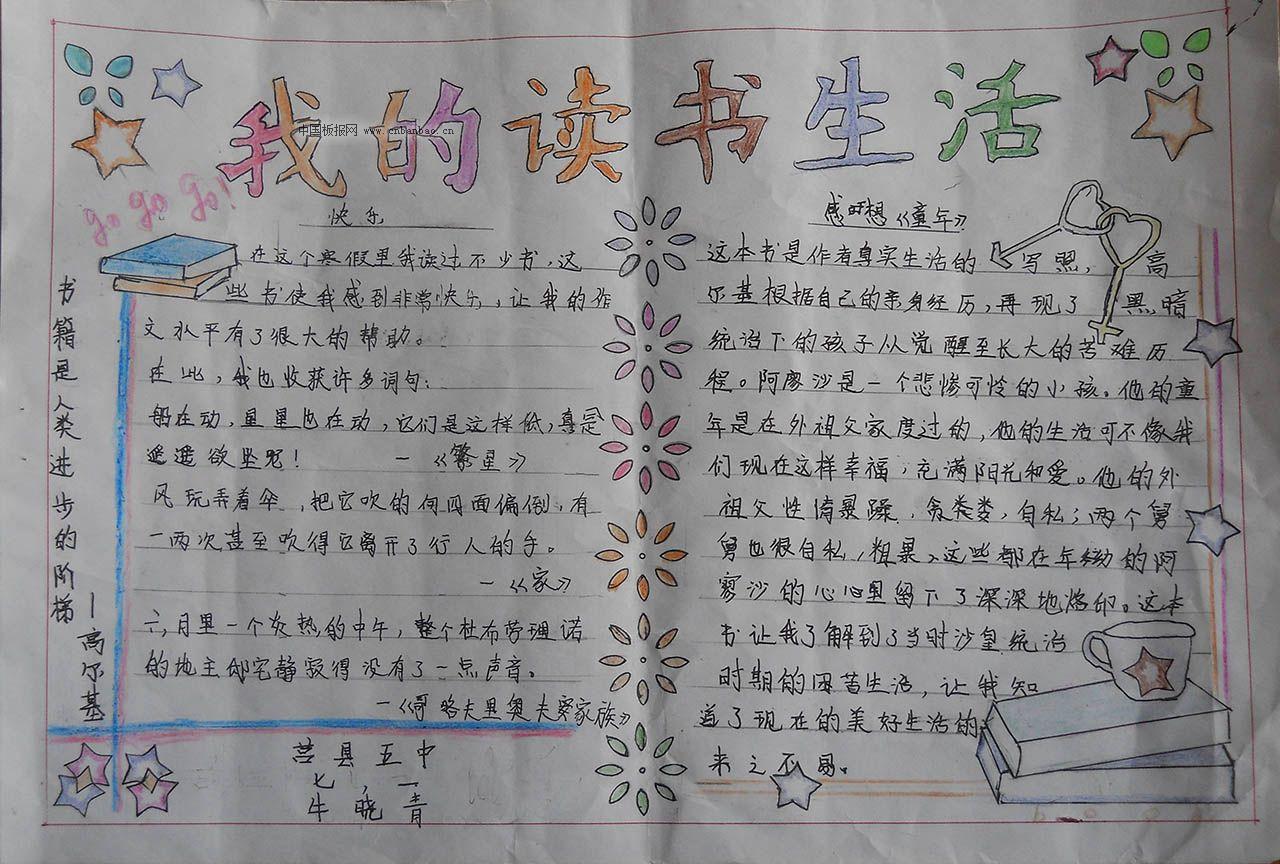 我的读书生活
中国板报网 www.cnbanbao.cn
go go go!
快乐
在这个寒假里我读过不少书，这
些书使我感到非常快乐，让我的作
文水平有了很大的帮助。
在此，我也收获许多词句：
船在动，星星也在动，它们是这样低，真是
遥遥欲坠呢！ — 《繁星》
风玩弄着伞，把它吹的向四面偏倒，有
一两次甚至吹得它离开了行人的手。
—《家》
六月里一个炎热的中午，整个杜布劳理诺
的地主邸宅静寂得没有了一点声音。
—《哥略夫里奥夫家族》
书籍是人类进步的阶梯
—高尔基
莒县五中
七，一
牛晓青
感想《童年》
这本书是作者真实生活的写照，高
尔基根据自己的亲身经历，再现了黑暗
统治下的孩子从觉醒至长大的苦难历
程。阿廖沙是一个悲惨可怜的小孩。他的童
年是在外祖父家度过的，他的生活可不像我
们现在这样幸福，充满阳光和爱。他的外
祖父性情暴躁，贪娄，自私；两个舅
舅也很自私，粗暴、这些都在年幼的阿
廖沙的心心里留下了深深地烙印。这本
书让我了解到了当时沙皇统治
时期的困苦生活，让我知
道了现在的美好生活的
来之不易。